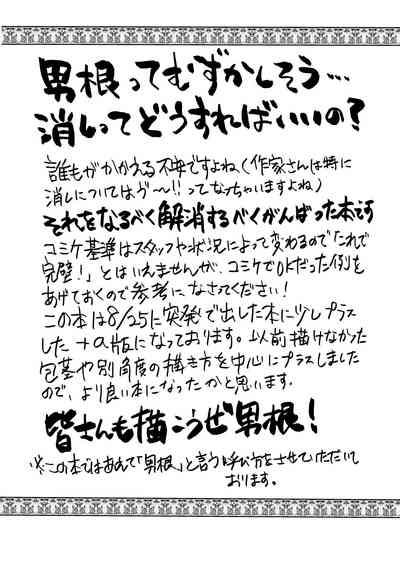 男根ってむずかしそう…
消しってどうすればいいの?
誰もがかかえる不安ですよね(作家さんは特に
消しについてはゔ〜!!ってなっちゃいますよね)
それをなるべく解消するべくがんばった本です
コミケ基準はスタッフや状況によって変わるので「これで
完璧!」とはいえませんが、コミケでOKだった例を
あげておくので参考になさってください!
この本は8/25に突発で出した本に少しプラス
した+α版になっております。以前描けなかった
包茎や別角度の描き方を中心にプラスしました
ので、より良い本になったかと思います。
皆さんも描こうぜ男根!
※この本ではあえて「男根」と言う呼び方をさせていただいて
おります。